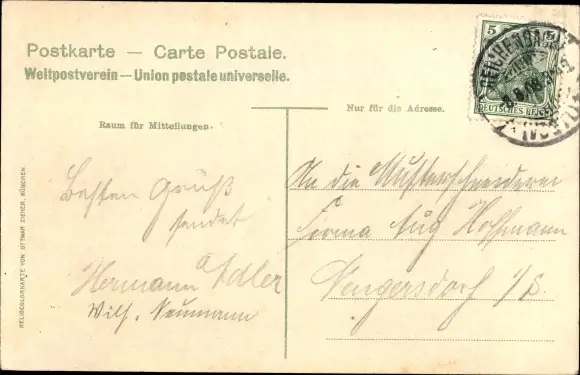 Postkarte — Carte Postale.
Weltpostverein — Union postale universelle.
5 5
DEUTSCHES REICH
REICHENBACH
Nur für die Adresse.
Raum für Mitteilungen.
Besten Gruß
sendet
Hermann Adler
Wilh. Neumann
An die Musterschneiderei
Firma Aug Hoffmann
Neugersdorf i/S.
HELIOCOLORKARTE VON OTTMAR ZIEHER, MÜNCHEN